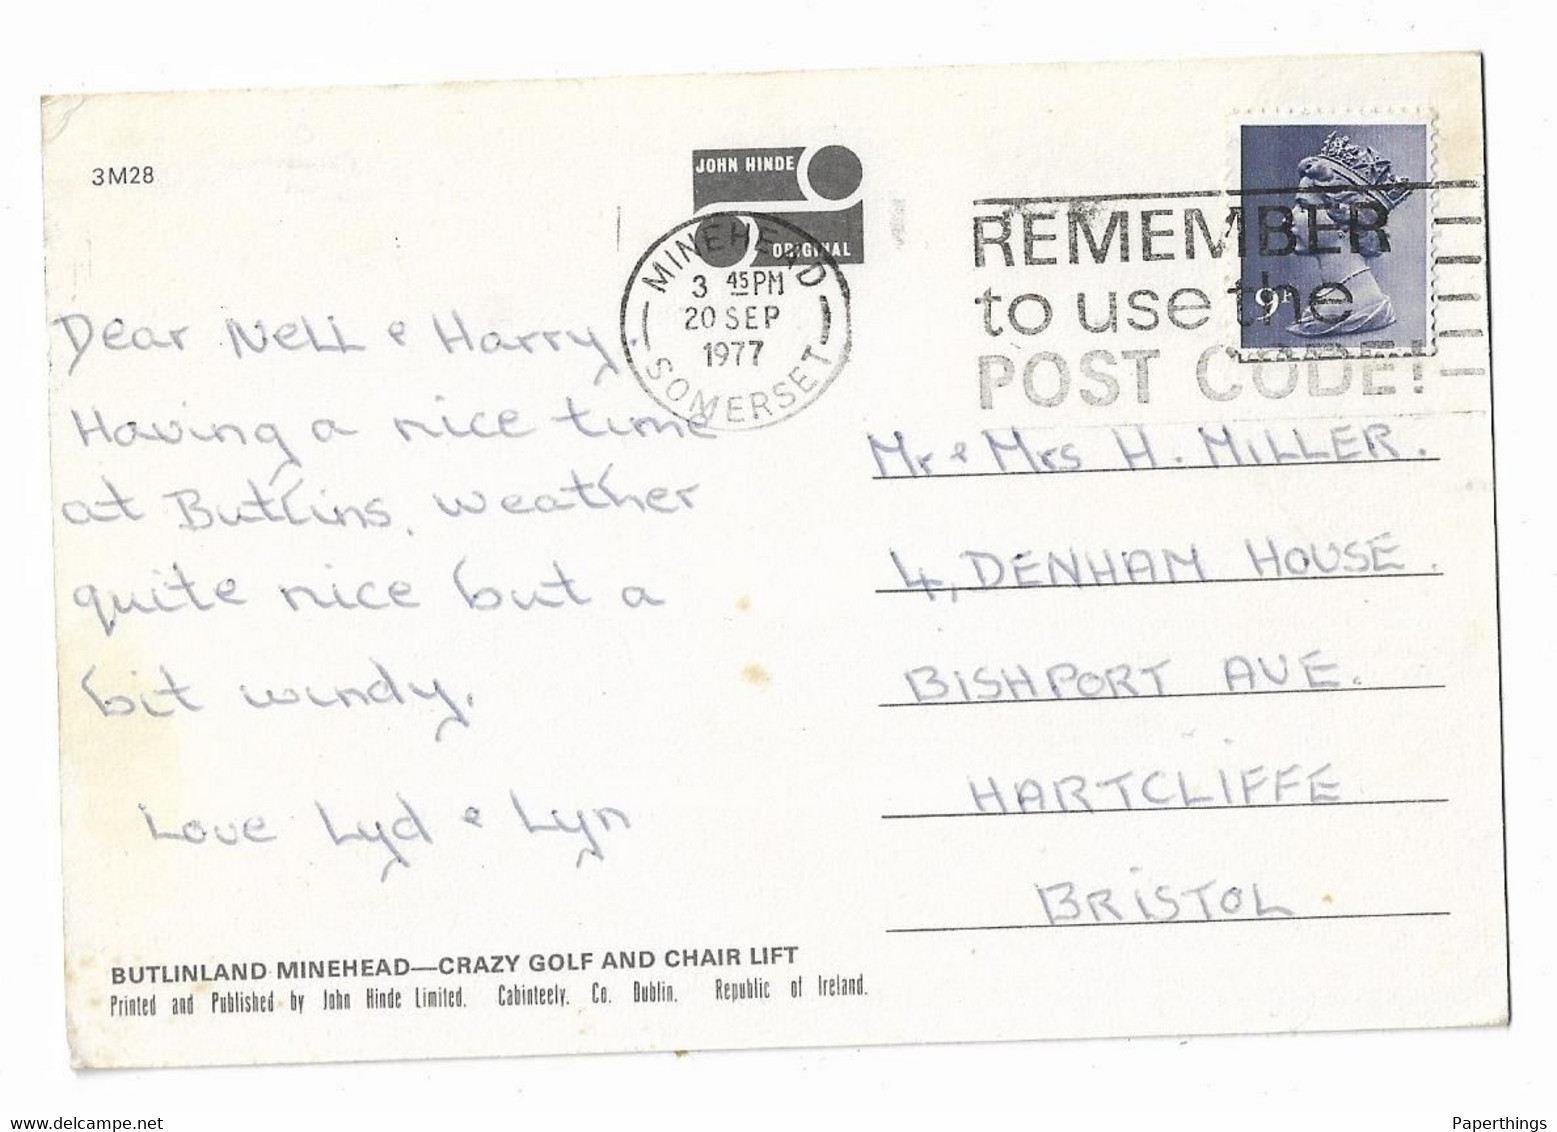 3M28
JOHN HINDE
ORIGINAL
MINEHEAD
3 45PM
20 SEP
1977
SOMERSET
REMEMBER
to use the
POST CODE!
9P
Dear Nell & Harry.
Having a nice time
at Butlins, weather
quite nice but a
bit windy.
Love Lyd & Lyn
Mr & Mrs H. MILLER.
4, DENHAM HOUSE.
BISHPORT AVE.
HARTCLIFFE
BRISTOL
BUTLINLAND MINEHEAD—CRAZY GOLF AND CHAIR LIFT
Printed and Published by John Hinde Limited. Cabinteely. Co. Dublin. Republic of Ireland.
www.delcampe.net
Paperthings